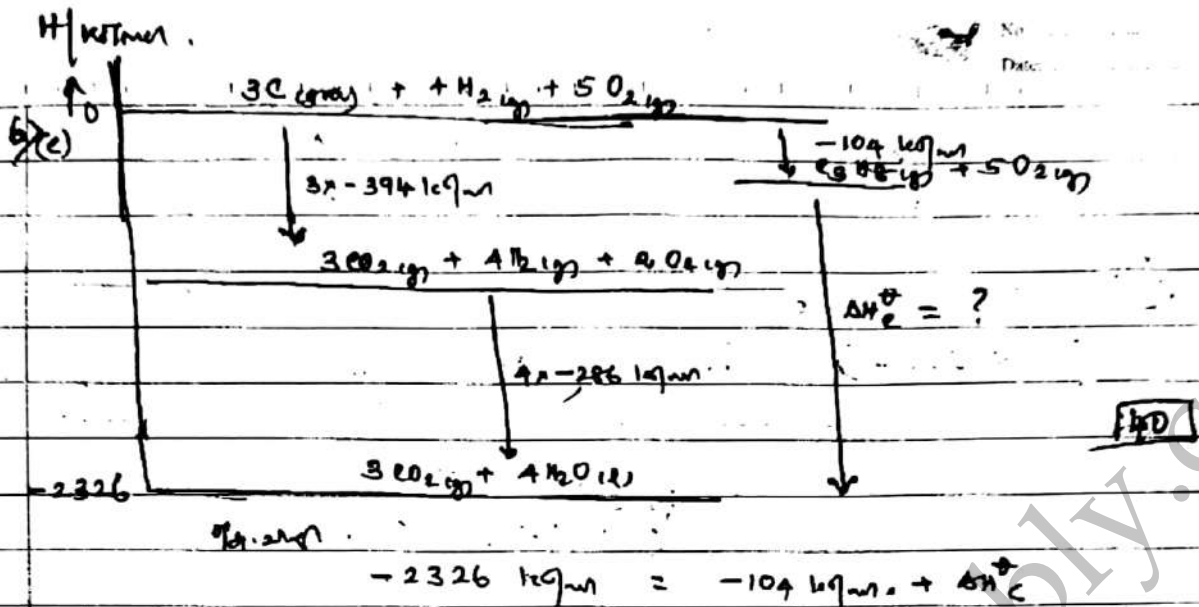 H/kJmol
No
Date:
3C + 4H₂(g) + 5O₂(g)
↑0
(c)
-104 kJmol
C₃H₈(g) + 5O₂(g)
3x-394 kJmol
3CO₂(g) + 4H₂(g) + 2O₂(g)
ΔH°c = ?
4x-286 kJmol
3CO₂(g) + 4H₂O(l)
-2326
-2326 kJmol = -104 kJmol + ΔH°c